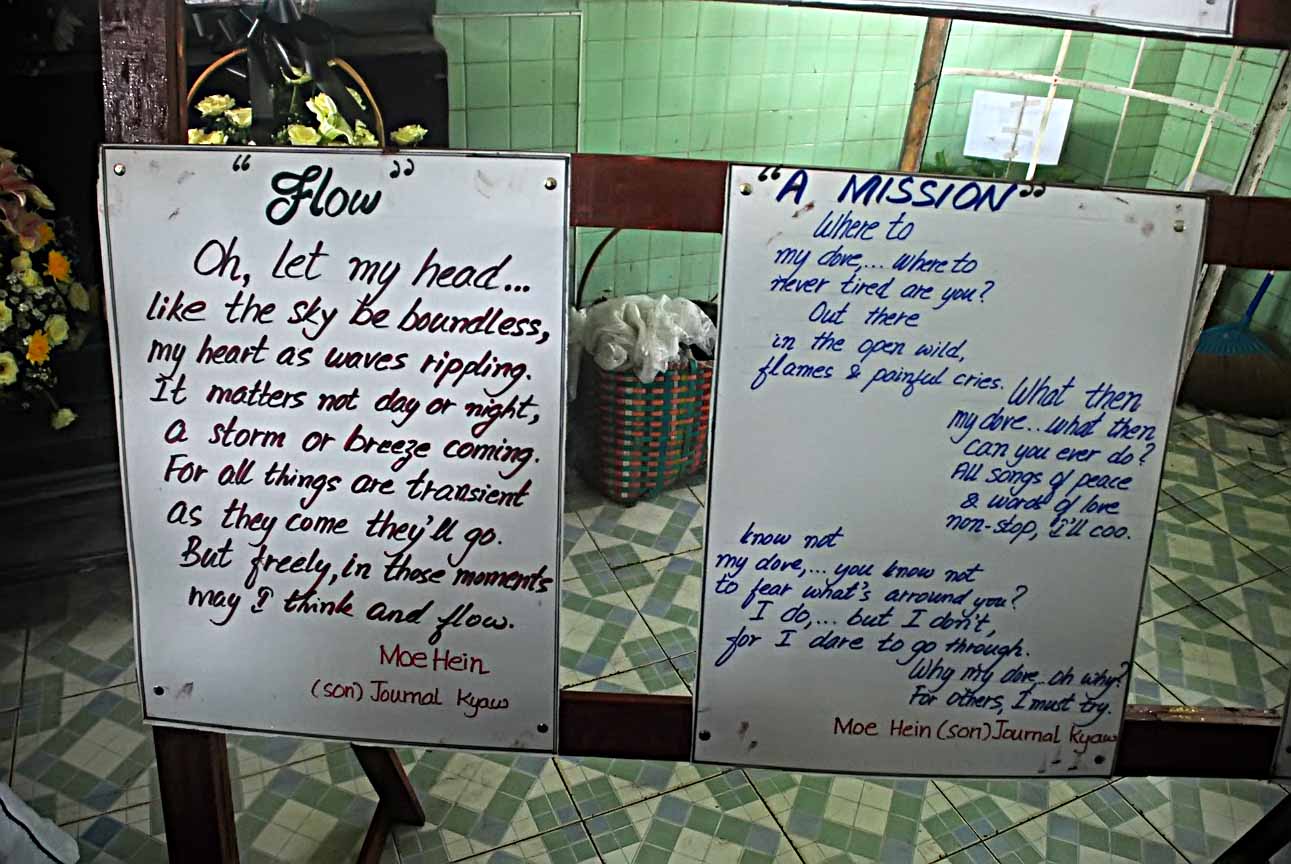 "Flow"
Oh, let my head...
like the sky be boundless,
my heart as waves rippling.
It matters not day or night,
a storm or breeze coming.
For all things are transient
as they come they'll go.
But freely, in those moments
may I think and flow.
Moe Hein
(son) Journal Kyaw
"A MISSION"
Where to
my dove,... where to
never tired are you?
Out there
in the open wild,
flames & painful cries.
What then
my dove... what then
can you ever do?
All songs of peace
& words of love
non-stop, I'll coo.
know not
my dove,... you know not
to fear what's arround you?
I do,... but I don't,
for I dare to go through.
Why my dove...oh why?
For others, I must try.
Moe Hein (son) Journal Kyaw